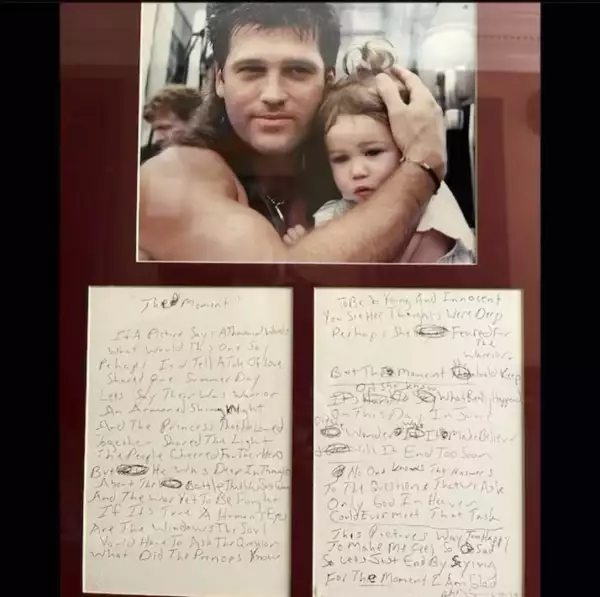 "The Moment"
If A Picture Says A Thousand Words
What Would This One Say
Perhaps It'd Tell A Tale Of Love
Shared One Summer Day
Lets Say There Was Warrior
An Armored Shining Knight
And The Princess That He Loved
Together Shared The Light
The People Cheered For Their Hero
But He Was Deep In Thought
About The Battle That He'd Just
And The War Yet To Be Fought
If It's True A Human's Eyes
Are The Windows The Soul
Would Have To Ask The Question
What Did The Princess Know
To Be So Young And Innosent
You See Her Thoughts Were Deep
Perhaps She Feared For
The
Warrior
But The Moment Would Keep
Did She Know
What Really Happened
On This Day In June
Wonder Is It Make Believe
Will It End Too Soon
No One Knows The Answers
To The Questions That We Ask
Only God In Heaven
Could Ever Meet That Task
This Picture's Way Too Happy
To Make Me Feel So Sad
So Lets Just End By Saying
For The Moment I Am Glad